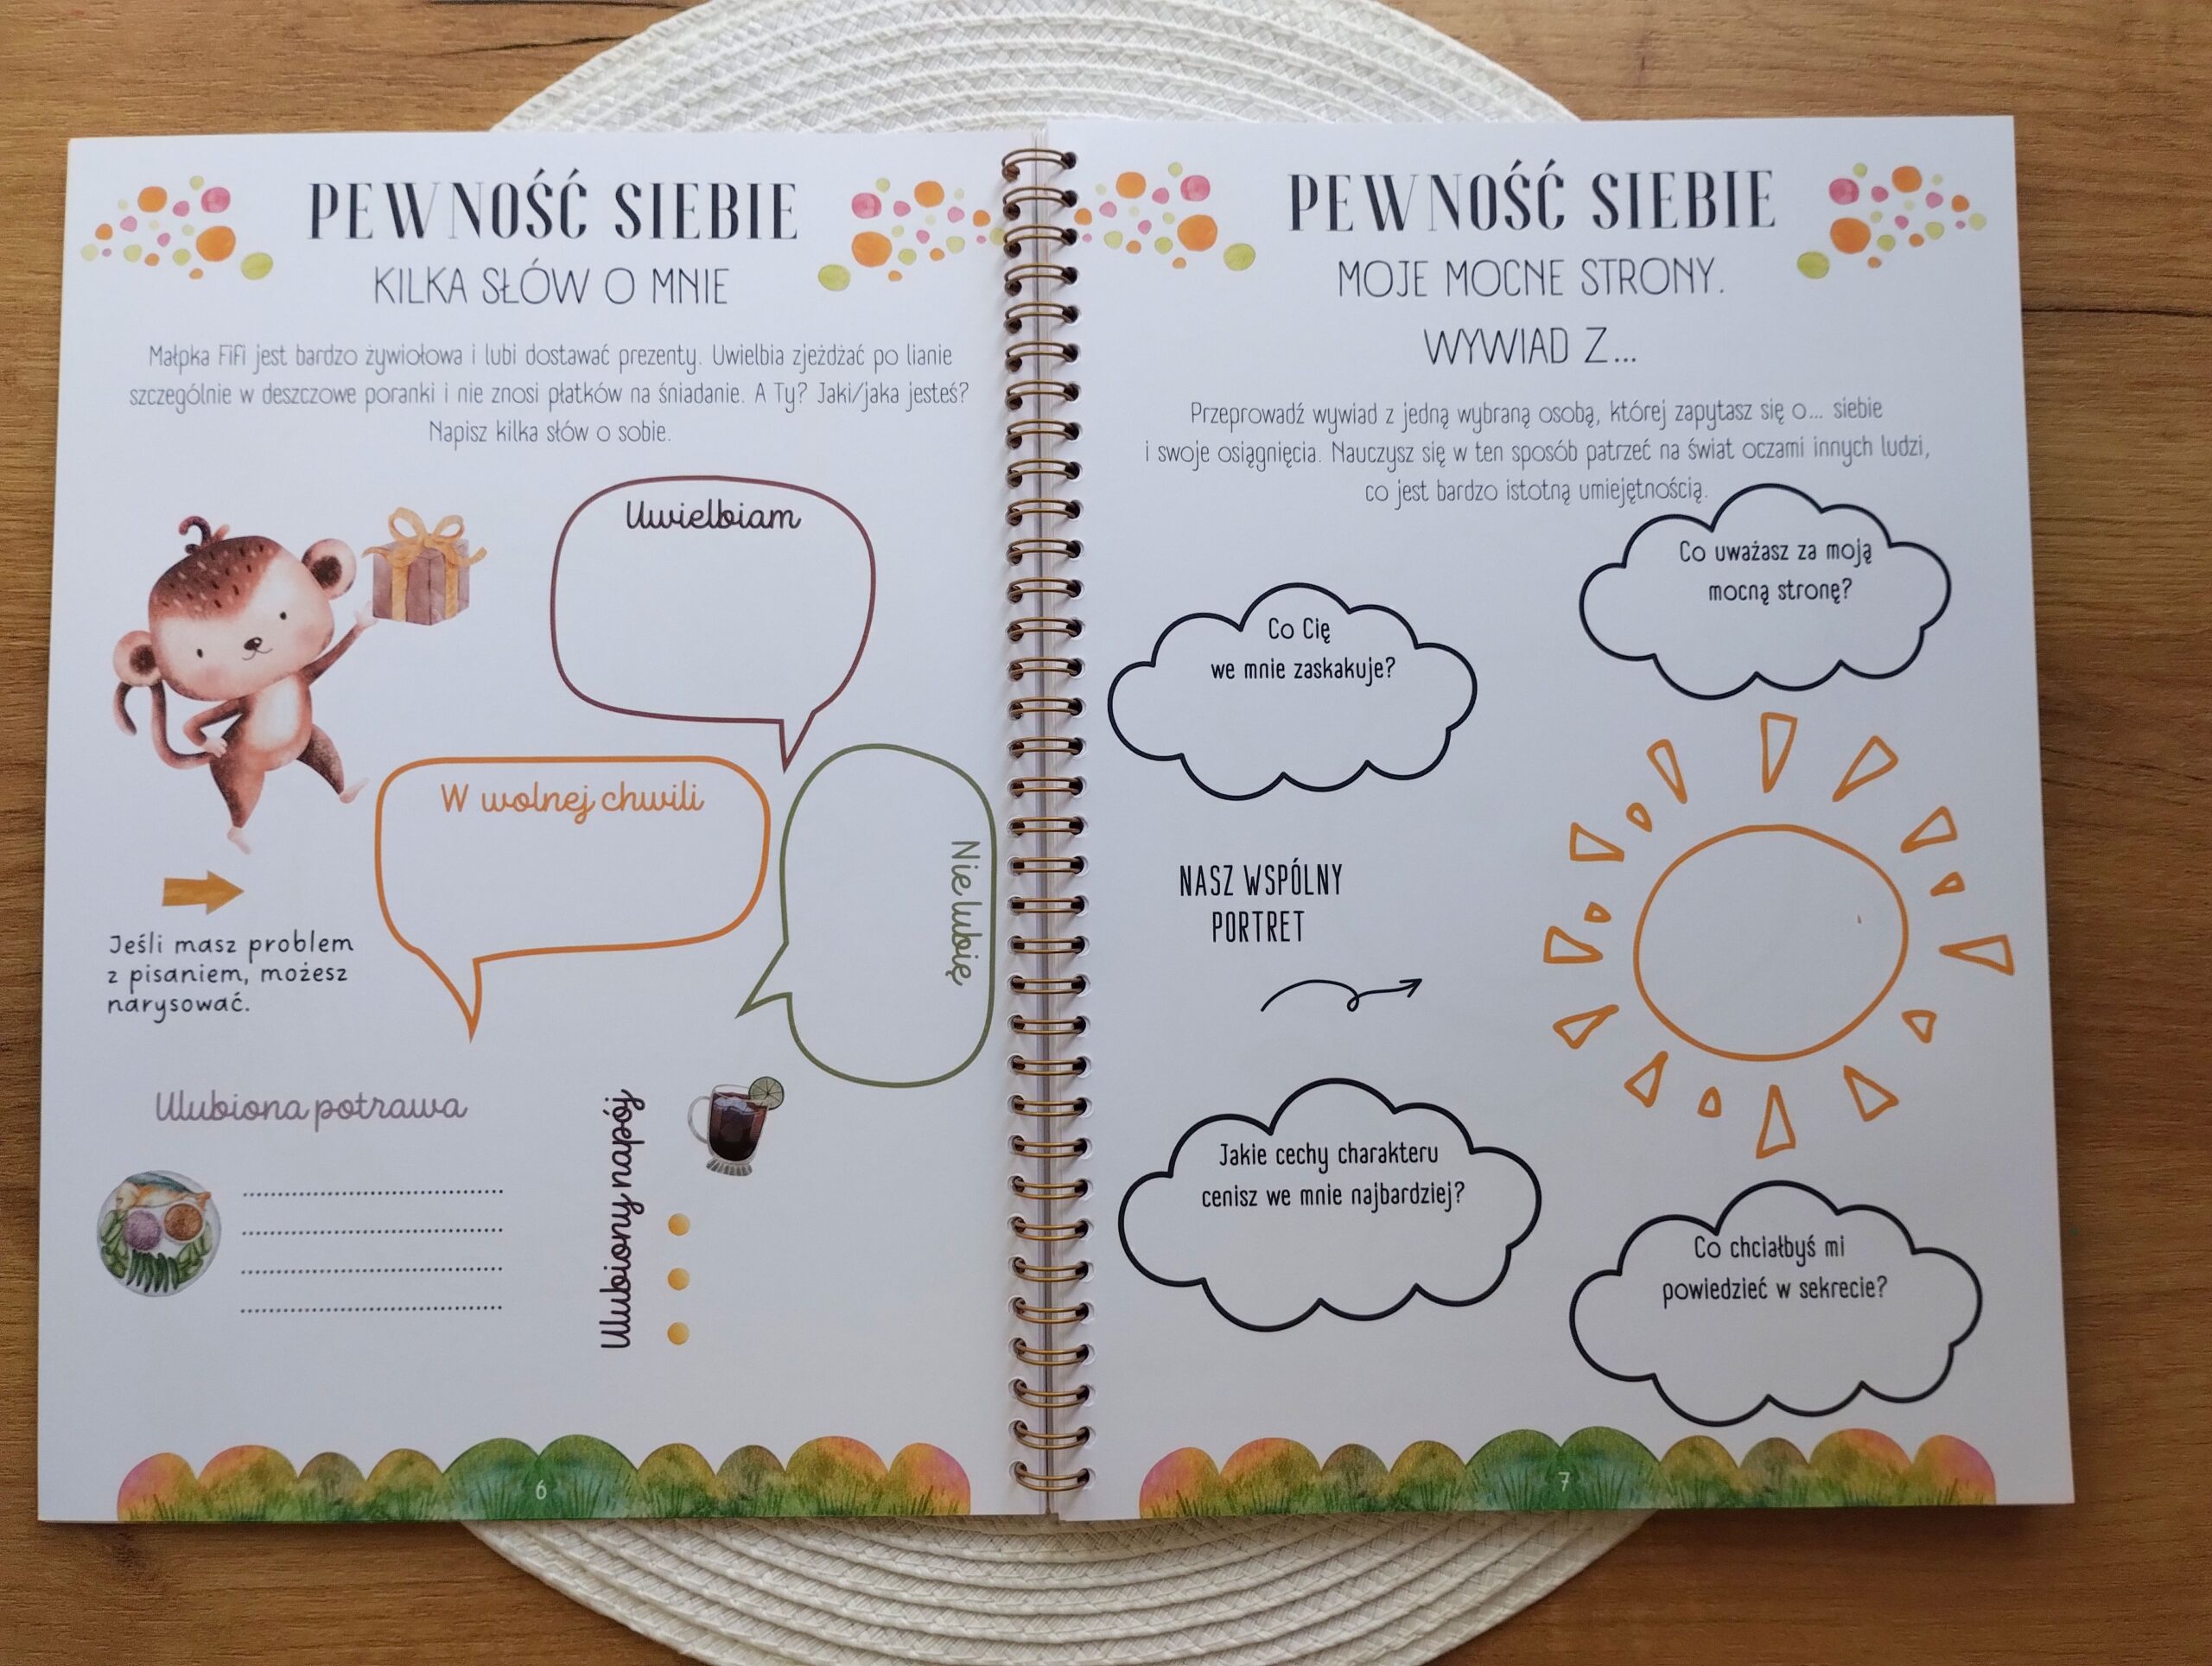 PEWNOŚĆ SIEBIE
KILKA SŁÓW O MNIE
Małpka Fifi jest bardzo żywiołowa i lubi dostawać prezenty. Uwielbia zjeżdżać po lianie
szczególnie w deszczowe poranki i nie znosi płatków na śniadanie. A Ty? Jaki/jaka jesteś?
Napisz kilka słów o sobie.
Uwielbiam
W wolnej chwili
Nie lubię
Jeśli masz problem
z pisaniem, możesz
narysować.
Ulubiona potrawa
Ulubiony napój
6
PEWNOŚĆ SIEBIE
MOJE MOCNE STRONY.
WYWIAD Z...
Przeprowadź wywiad z jedną wybraną osobą, której zapytasz się o... siebie
i swoje osiągnięcia. Nauczysz się w ten sposób patrzeć na świat oczami innych ludzi,
co jest bardzo istotną umiejętnością.
Co uważasz za moją
mocną stronę?
Co Cię
we mnie zaskakuje?
NASZ WSPÓLNY
PORTRET
Jakie cechy charakteru
cenisz we mnie najbardziej?
Co chciałbyś mi
powiedzieć w sekrecie?
7